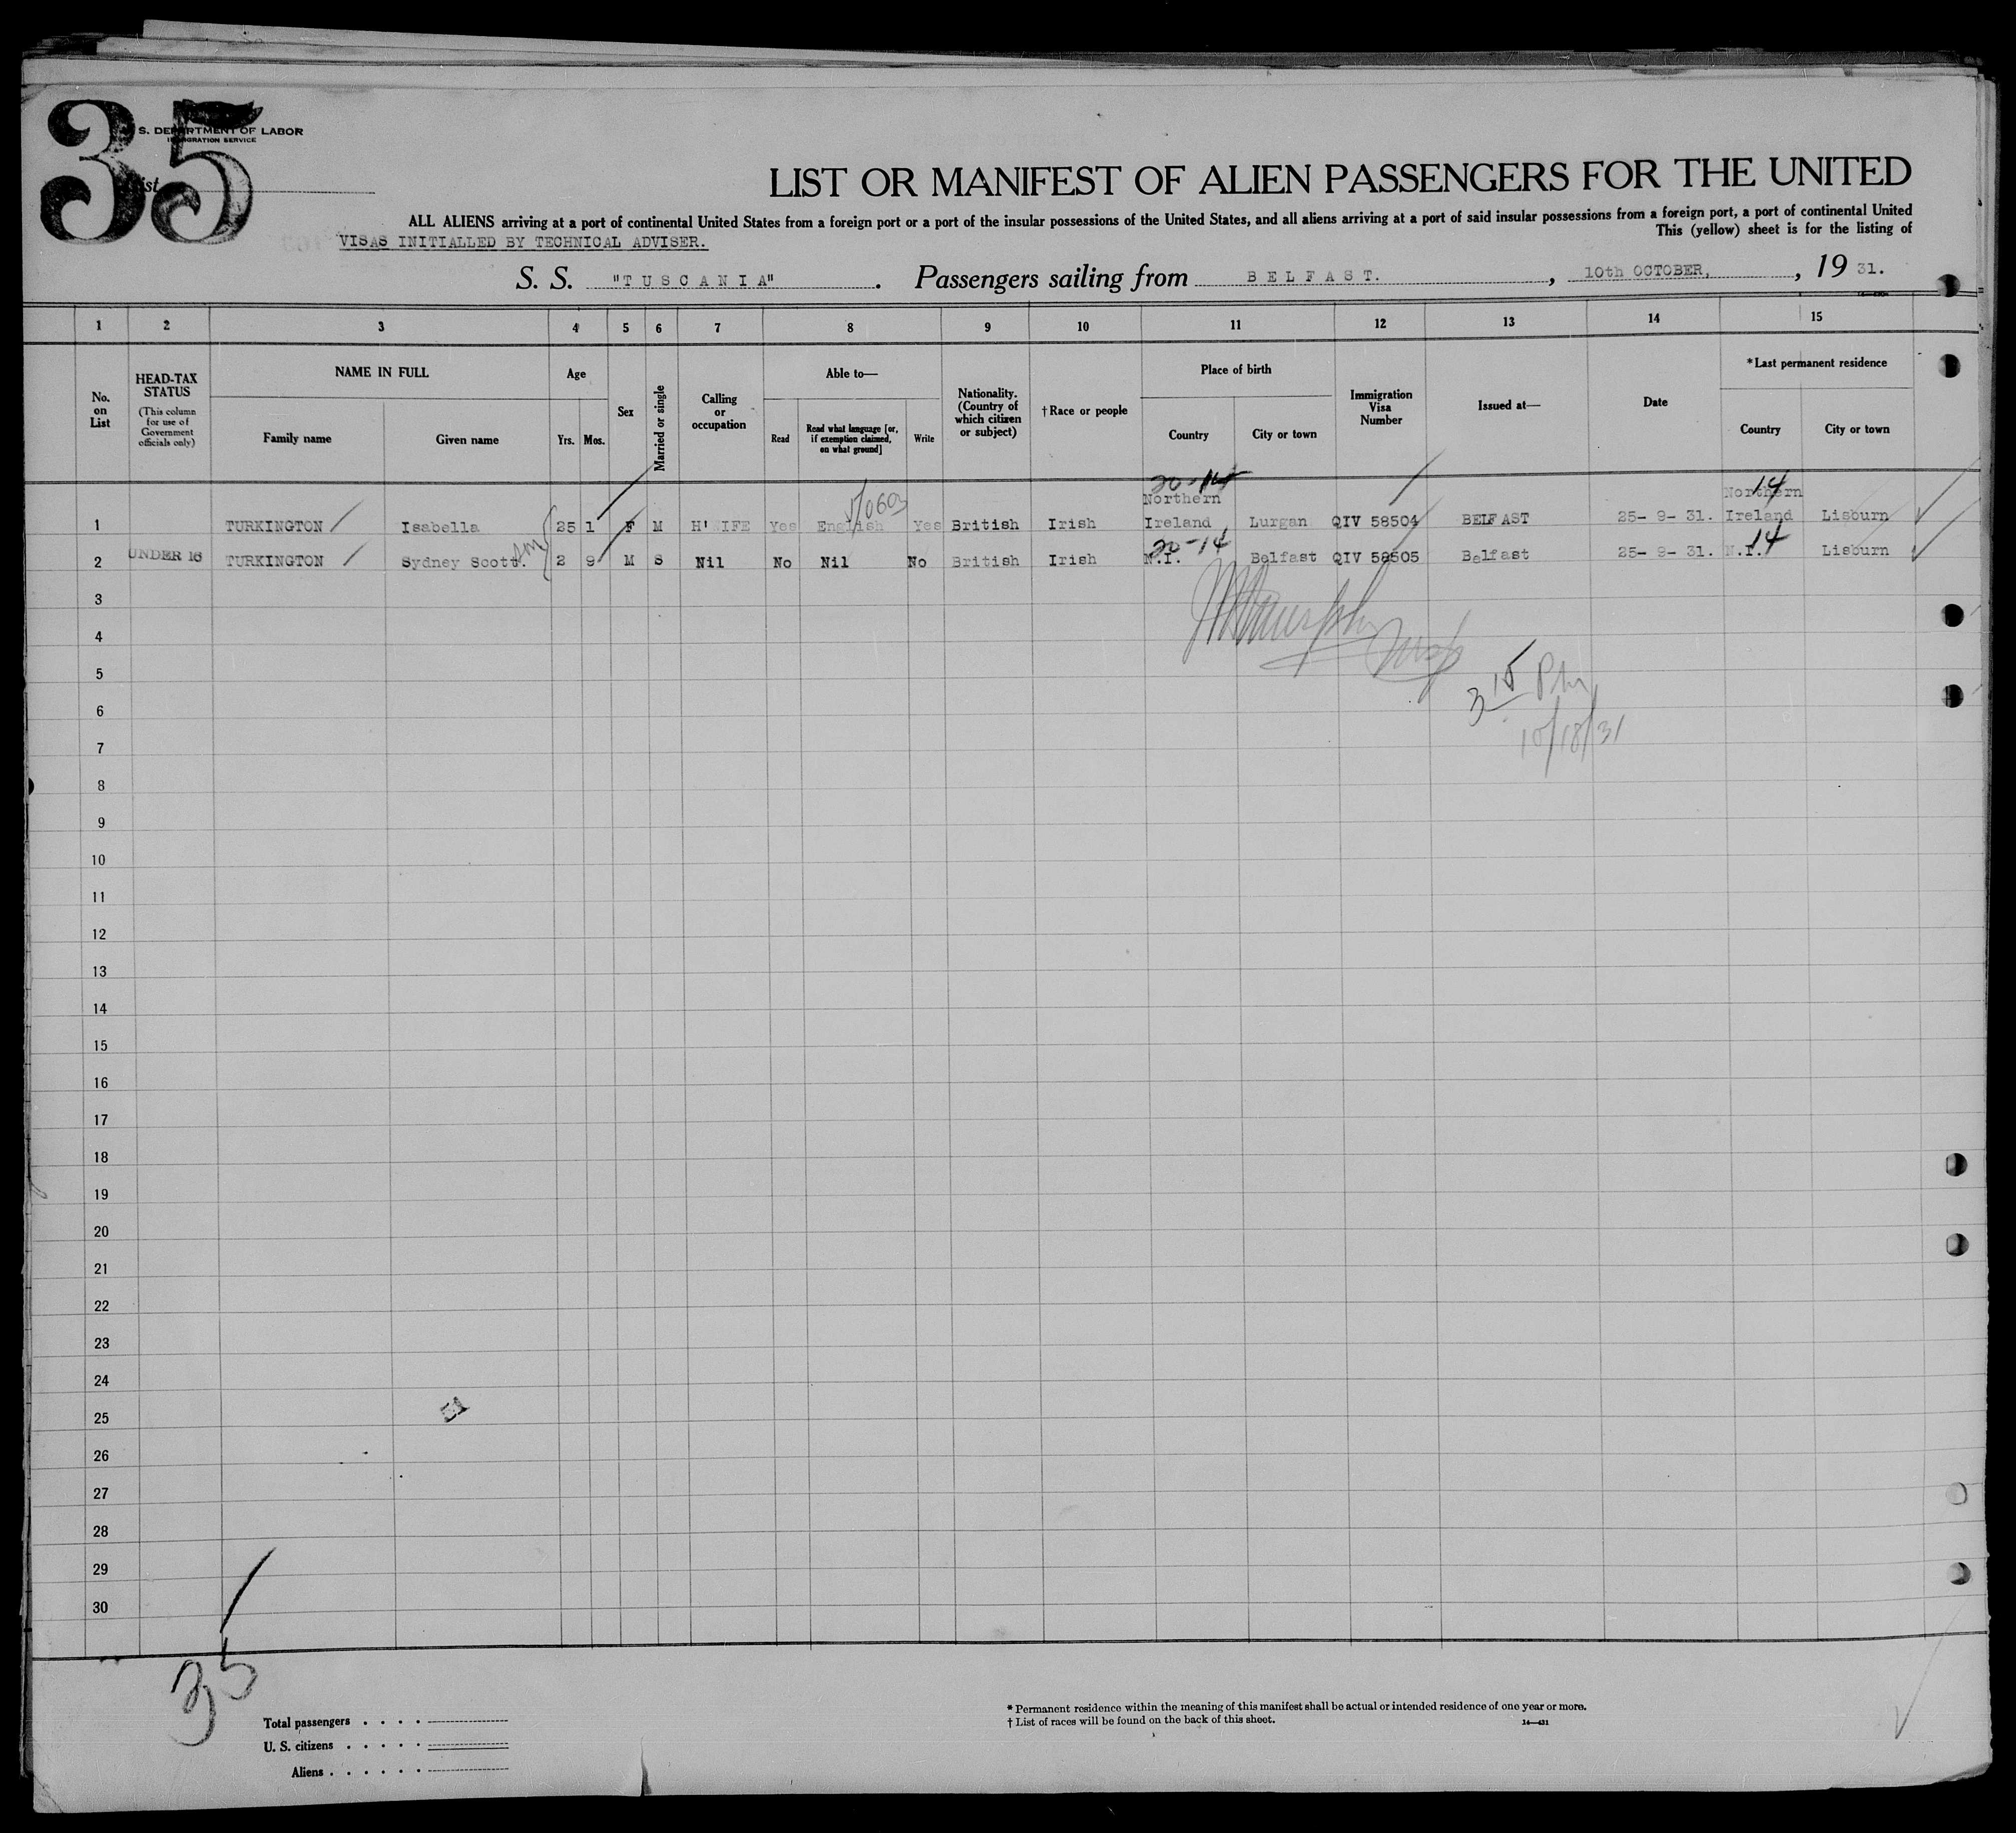 35
S. DEPARTMENT OF LABOR
IMMIGRATION SERVICE
List
LIST OR MANIFEST OF ALIEN PASSENGERS FOR THE UNITED
ALL ALIENS arriving at a port of continental United States from a foreign port or a port of the insular possessions of the United States, and all aliens arriving at a port of said insular possessions from a foreign port, a port of continental United
This (yellow) sheet is for the listing of
VISAS INITIALLED BY TECHNICAL ADVISER.
S. S. "TUSCANIA". Passengers sailing from BELFAST., 10th OCTOBER, , 19 31.
1 2 3 4 5 6 7 8 9 10 11 12 13 14 15
No. on List
HEAD-TAX STATUS (This column for use of Government officials only)
NAME IN FULL
Family name Given name
Age
Yrs. Mos.
Sex
Married or single
Calling or occupation
Able to—
Read
Read what language [or, if exemption claimed, on what ground]
Write
Nationality. (Country of which citizen or subject)
†Race or people
Place of birth
Country City or town
Immigration Visa Number
Issued at—
Date
*Last permanent residence
Country City or town
20-14 14
1 TURKINGTON Isabella 25 1 F M H'WIFE Yes English Yes British Irish Northern Ireland Lurgan QIV 58504 BELFAST 25- 9- 31. Northern Ireland Lisburn
20-14 14
2 UNDER 16 TURKINGTON Sydney Scott. 2 9 M S Nil No Nil No British Irish N.I. Belfast QIV 58505 Belfast 25- 9- 31. N.I. Lisburn
3
4
5
3 15 PM
6
10/18/31
7
8
9
10
11
12
13
14
15
16
17
18
19
20
21
22
23
24
25
26
27
28
29
30
35
Total passengers . . . .
U. S. citizens . . . . .
Aliens . . . . . .
* Permanent residence within the meaning of this manifest shall be actual or intended residence of one year or more.
† List of races will be found on the back of this sheet.
14—431